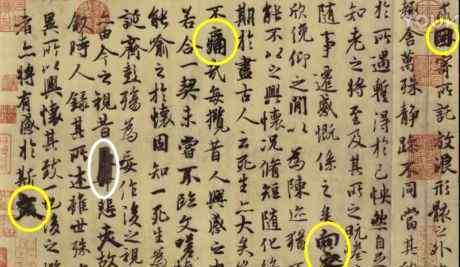 因寄所託放浪形骸之外
趣舍萬殊靜躁不同當其
於所遇蹔得於己怏然自
知老之將至及其所之既惓
隨事遷感慨係之矣向之
欣俛仰之閒以為陳迹猶不
能不以之興懷況脩短隨化終
期於盡古人云死生亦大矣
不痛哉每攬昔人興感之
若合一契未嘗不臨文嗟
能喻之於懷固知一死生為
誕齊彭殤為妄作後之視
亦由今之視昔悲夫故
叙時人錄其所述雖世殊
異所以興懷其致一也後之
者亦將有感於斯文